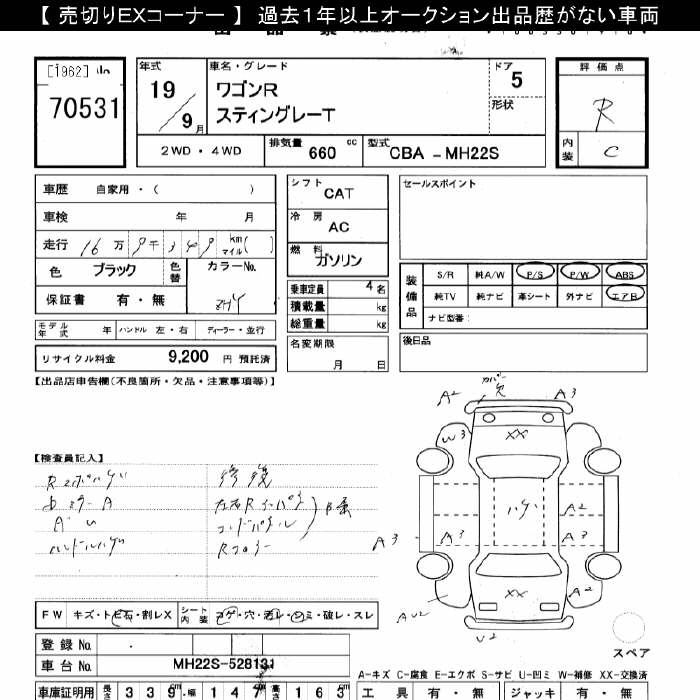 【 売切りEXコーナー 】 過去1年以上オークション出品歴がない車両
[1962]
70531
年式
19
9月
車名・グレード
ワゴンR
スティングレーT
ドア
5
形状
評価点
R
内装
C
2WD・4WD
排気量
660 cc
型式
CBA - MH22S
車歴 自家用・( )
車検 年 月
走行 16万9千349 km マイル( )
色 ブラック
色替
カラーNo.
ZHY
保証書 有・無
モデル年式 年 ハンドル 左・右 ディーラー・並行
リサイクル料金 9,200 円 預託済
シフト
CAT
冷房
AC
燃料
ガソリン
乗車定員 4 名
積載量 kg
総重量 kg
名変期限
月 日
セールスポイント
装備品
S/R 純A/W P/S P/W ABS
純TV 純ナビ 革シート 外ナビ エアB
ナビ型番:
後日品
【出品店申告欄(不良箇所・欠品・注意事項等)】
【検査員記入】
修復
ハンドルハゲ
A2
カバー欠
A3
W3
XX
ハゲ
A2
A3
A3
A3
XX
A2
AU2
U2
スペア
FW キズ・トビ石・割レX
シート内装 コゲ・穴・汚レ・シミ・破レ・スレ
登録No.
車台No. MH22S-528131
A-キズ C-腐食 E-エクボ S-サビ U-凹ミ W-補修 XX-交換済
車庫証明用 長さ 339 cm 幅 147 cm 高さ 163 cm
工具 有・無 ジャッキ 有・無